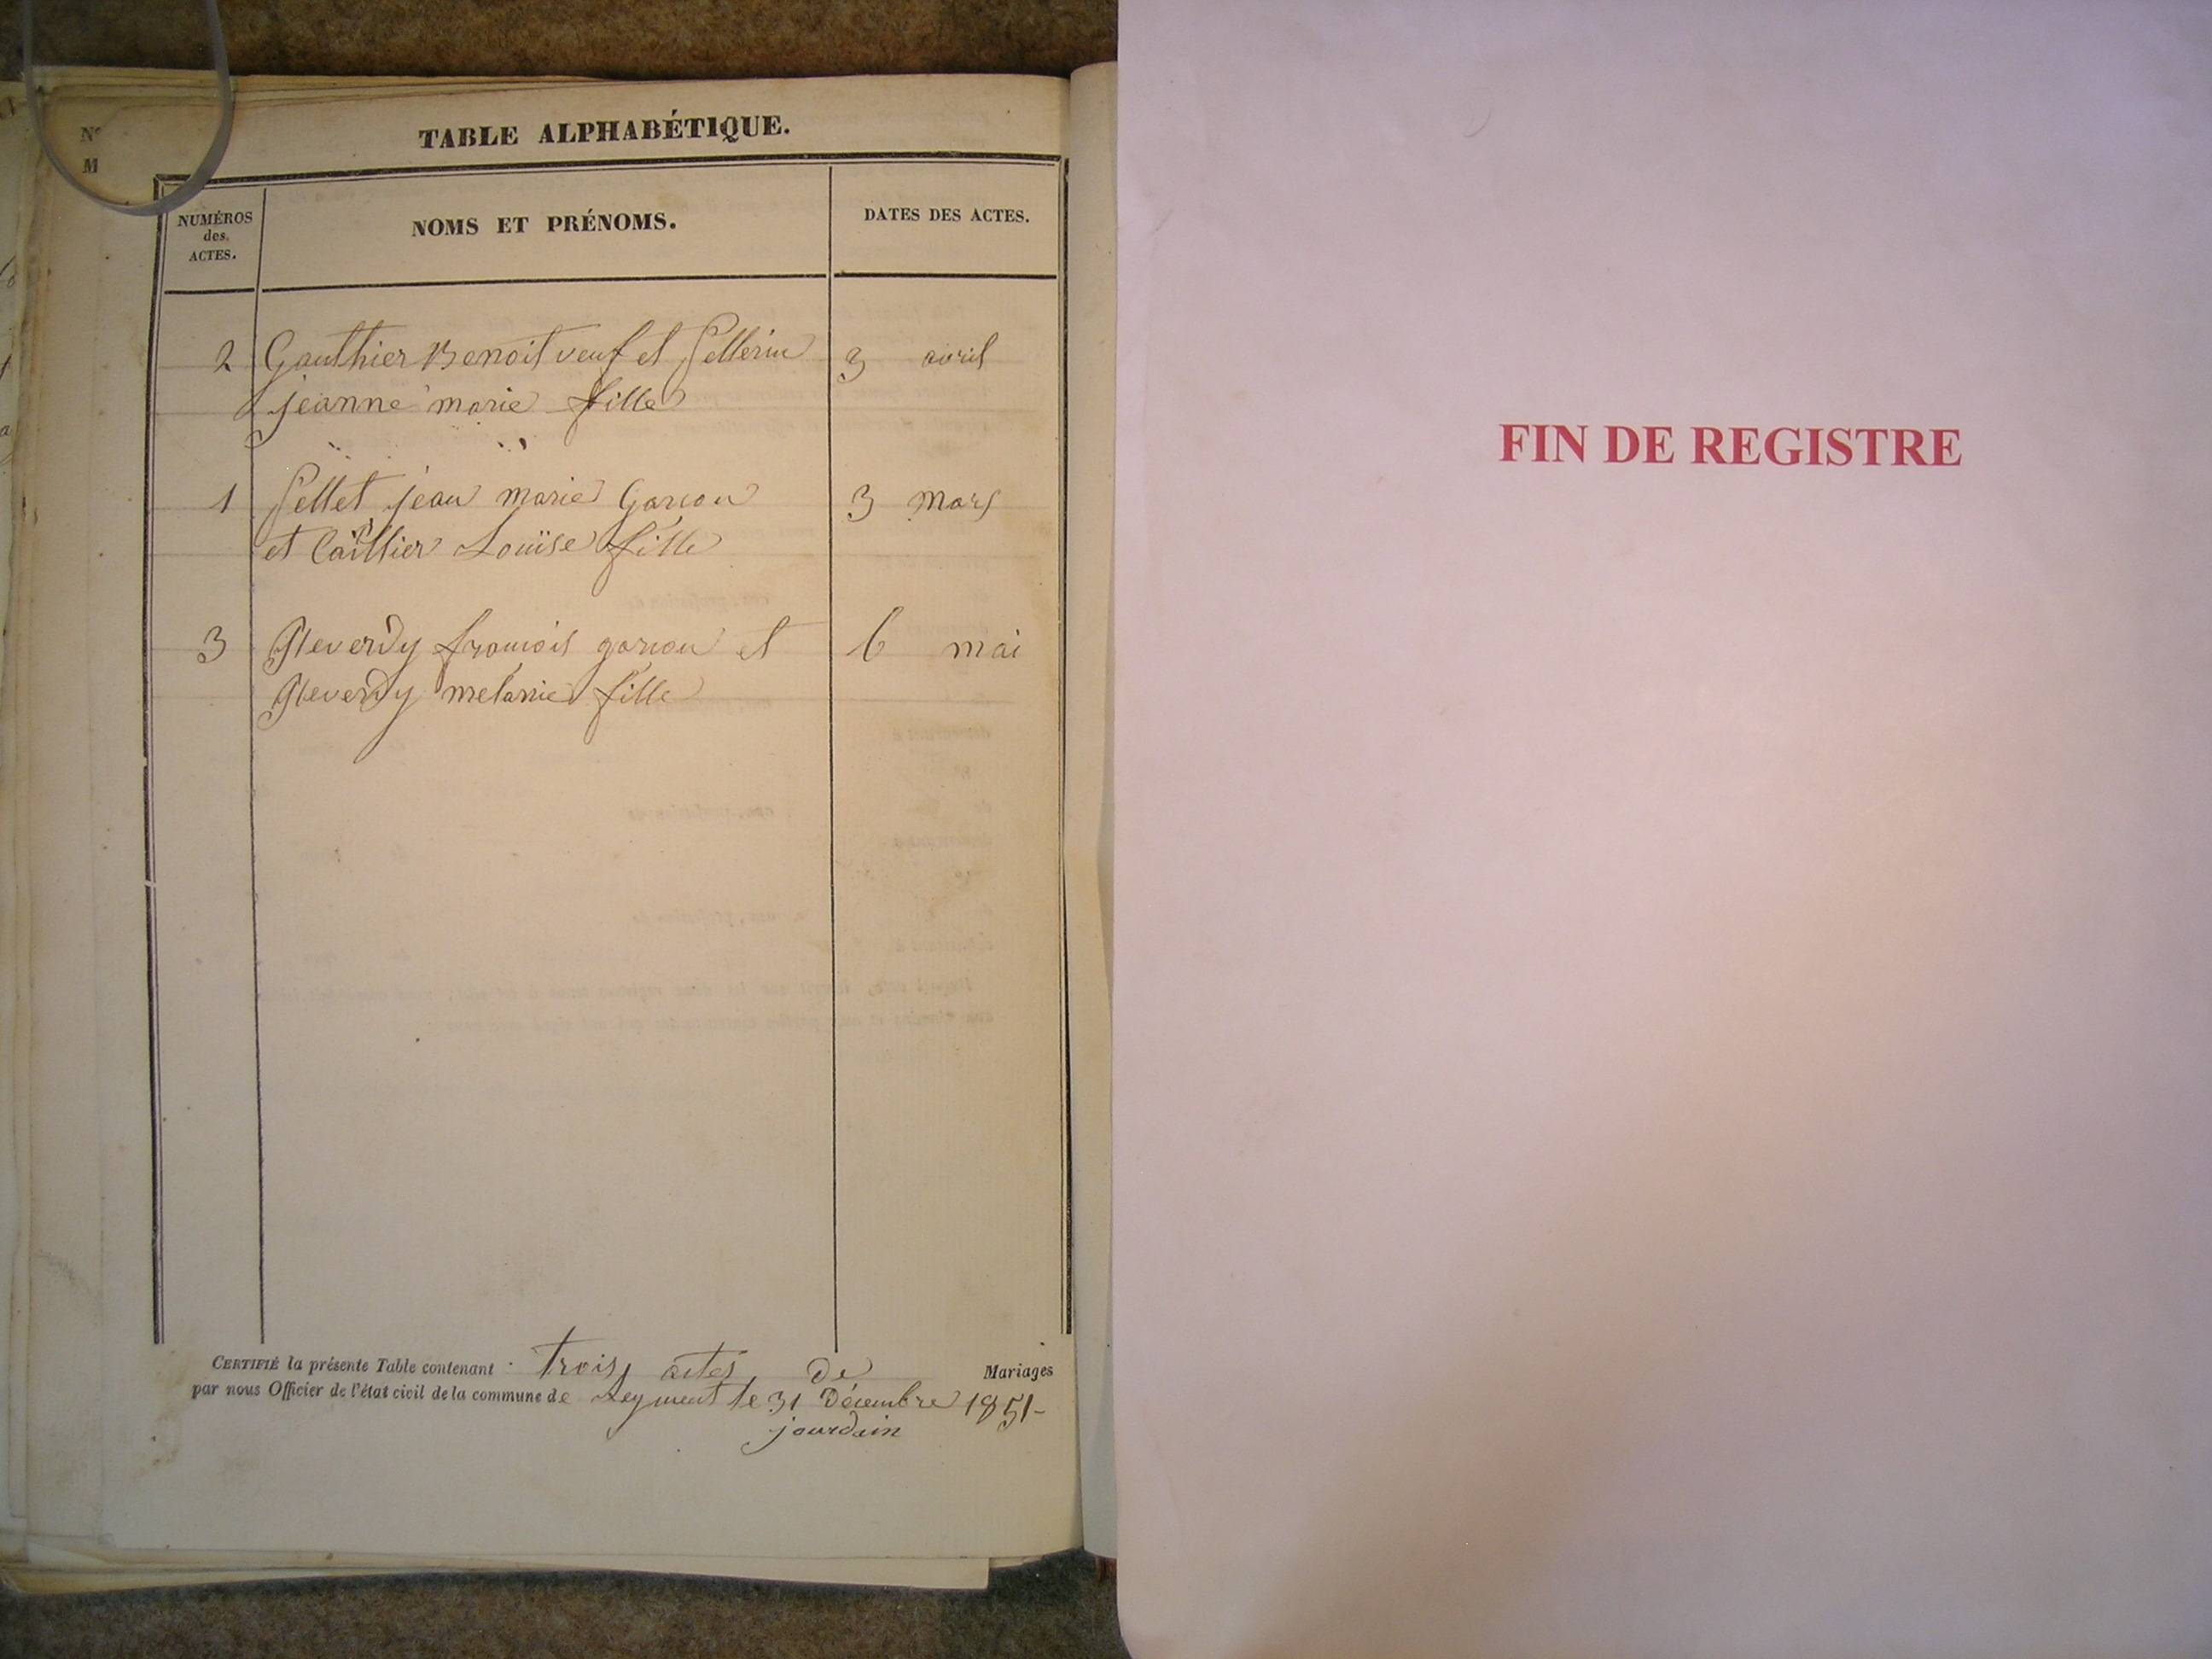 N°
M
TABLE ALPHABÉTIQUE.
NUMÉROS
des
ACTES.
NOMS ET PRÉNOMS.
DATES DES ACTES.
2 Gauthier Benoit veuf et Pellerin 3 avril
jeanne marie fille
1 Pellet jean marie Garcon 3 Mars
et Caillier Louise fille
3 Reverdy francois garcon et 6 mai
Reverdy melanie fille
CERTIFIÉ la présente Table contenant trois actes de Mariages
par nous Officier de l'état civil de la commune de Leyment le 31 Décembre 1851
jourdain
FIN DE REGISTRE